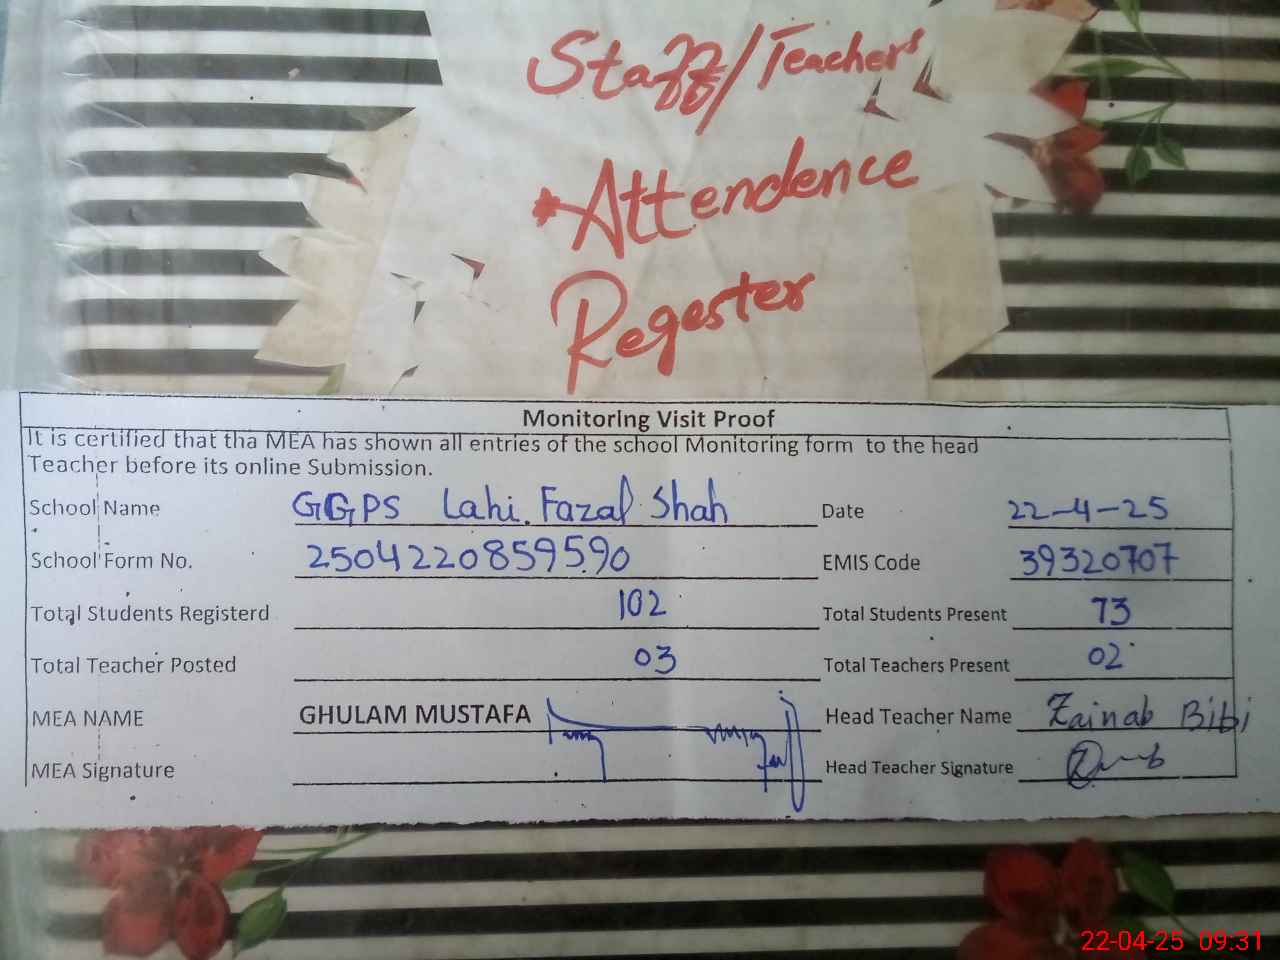 Staff/Teachers
*Attendence
Regester
Monitoring Visit Proof
It is certified that tha MEA has shown all entries of the school Monitoring form to the head
Teacher before its online Submission.
School Name GGPS Lahi. Fazal Shah Date 22-4-25
School Form No. 2504220859590 EMIS Code 39320707
Total Students Registerd 102 Total Students Present 73
Total Teacher Posted 03 Total Teachers Present 02
MEA NAME GHULAM MUSTAFA Head Teacher Name Zainab Bibi
MEA Signature Head Teacher Signature
22-04-25 09:31